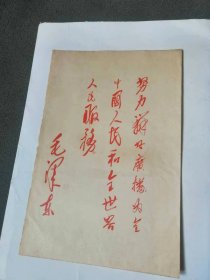 努力办好广播为全
中国人民和全世界
人民服务
毛泽东